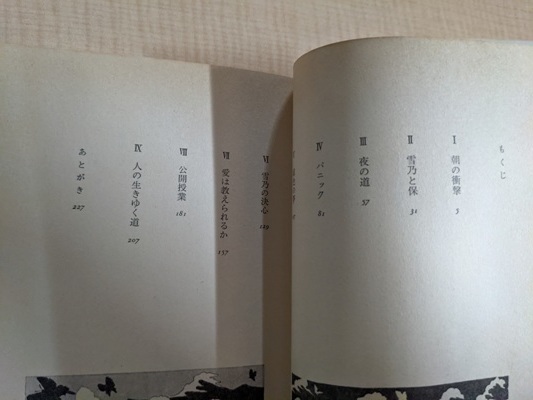 もくじ
Ⅰ 朝の衝撃 5
Ⅱ 雪乃と保 31
Ⅲ 夜の道 57
Ⅳ パニック 81
Ⅵ 雪乃の決心 129
Ⅶ 愛は教えられるか 157
Ⅷ 公開授業 181
Ⅸ 人の生きゆく道 207
あとがき 227